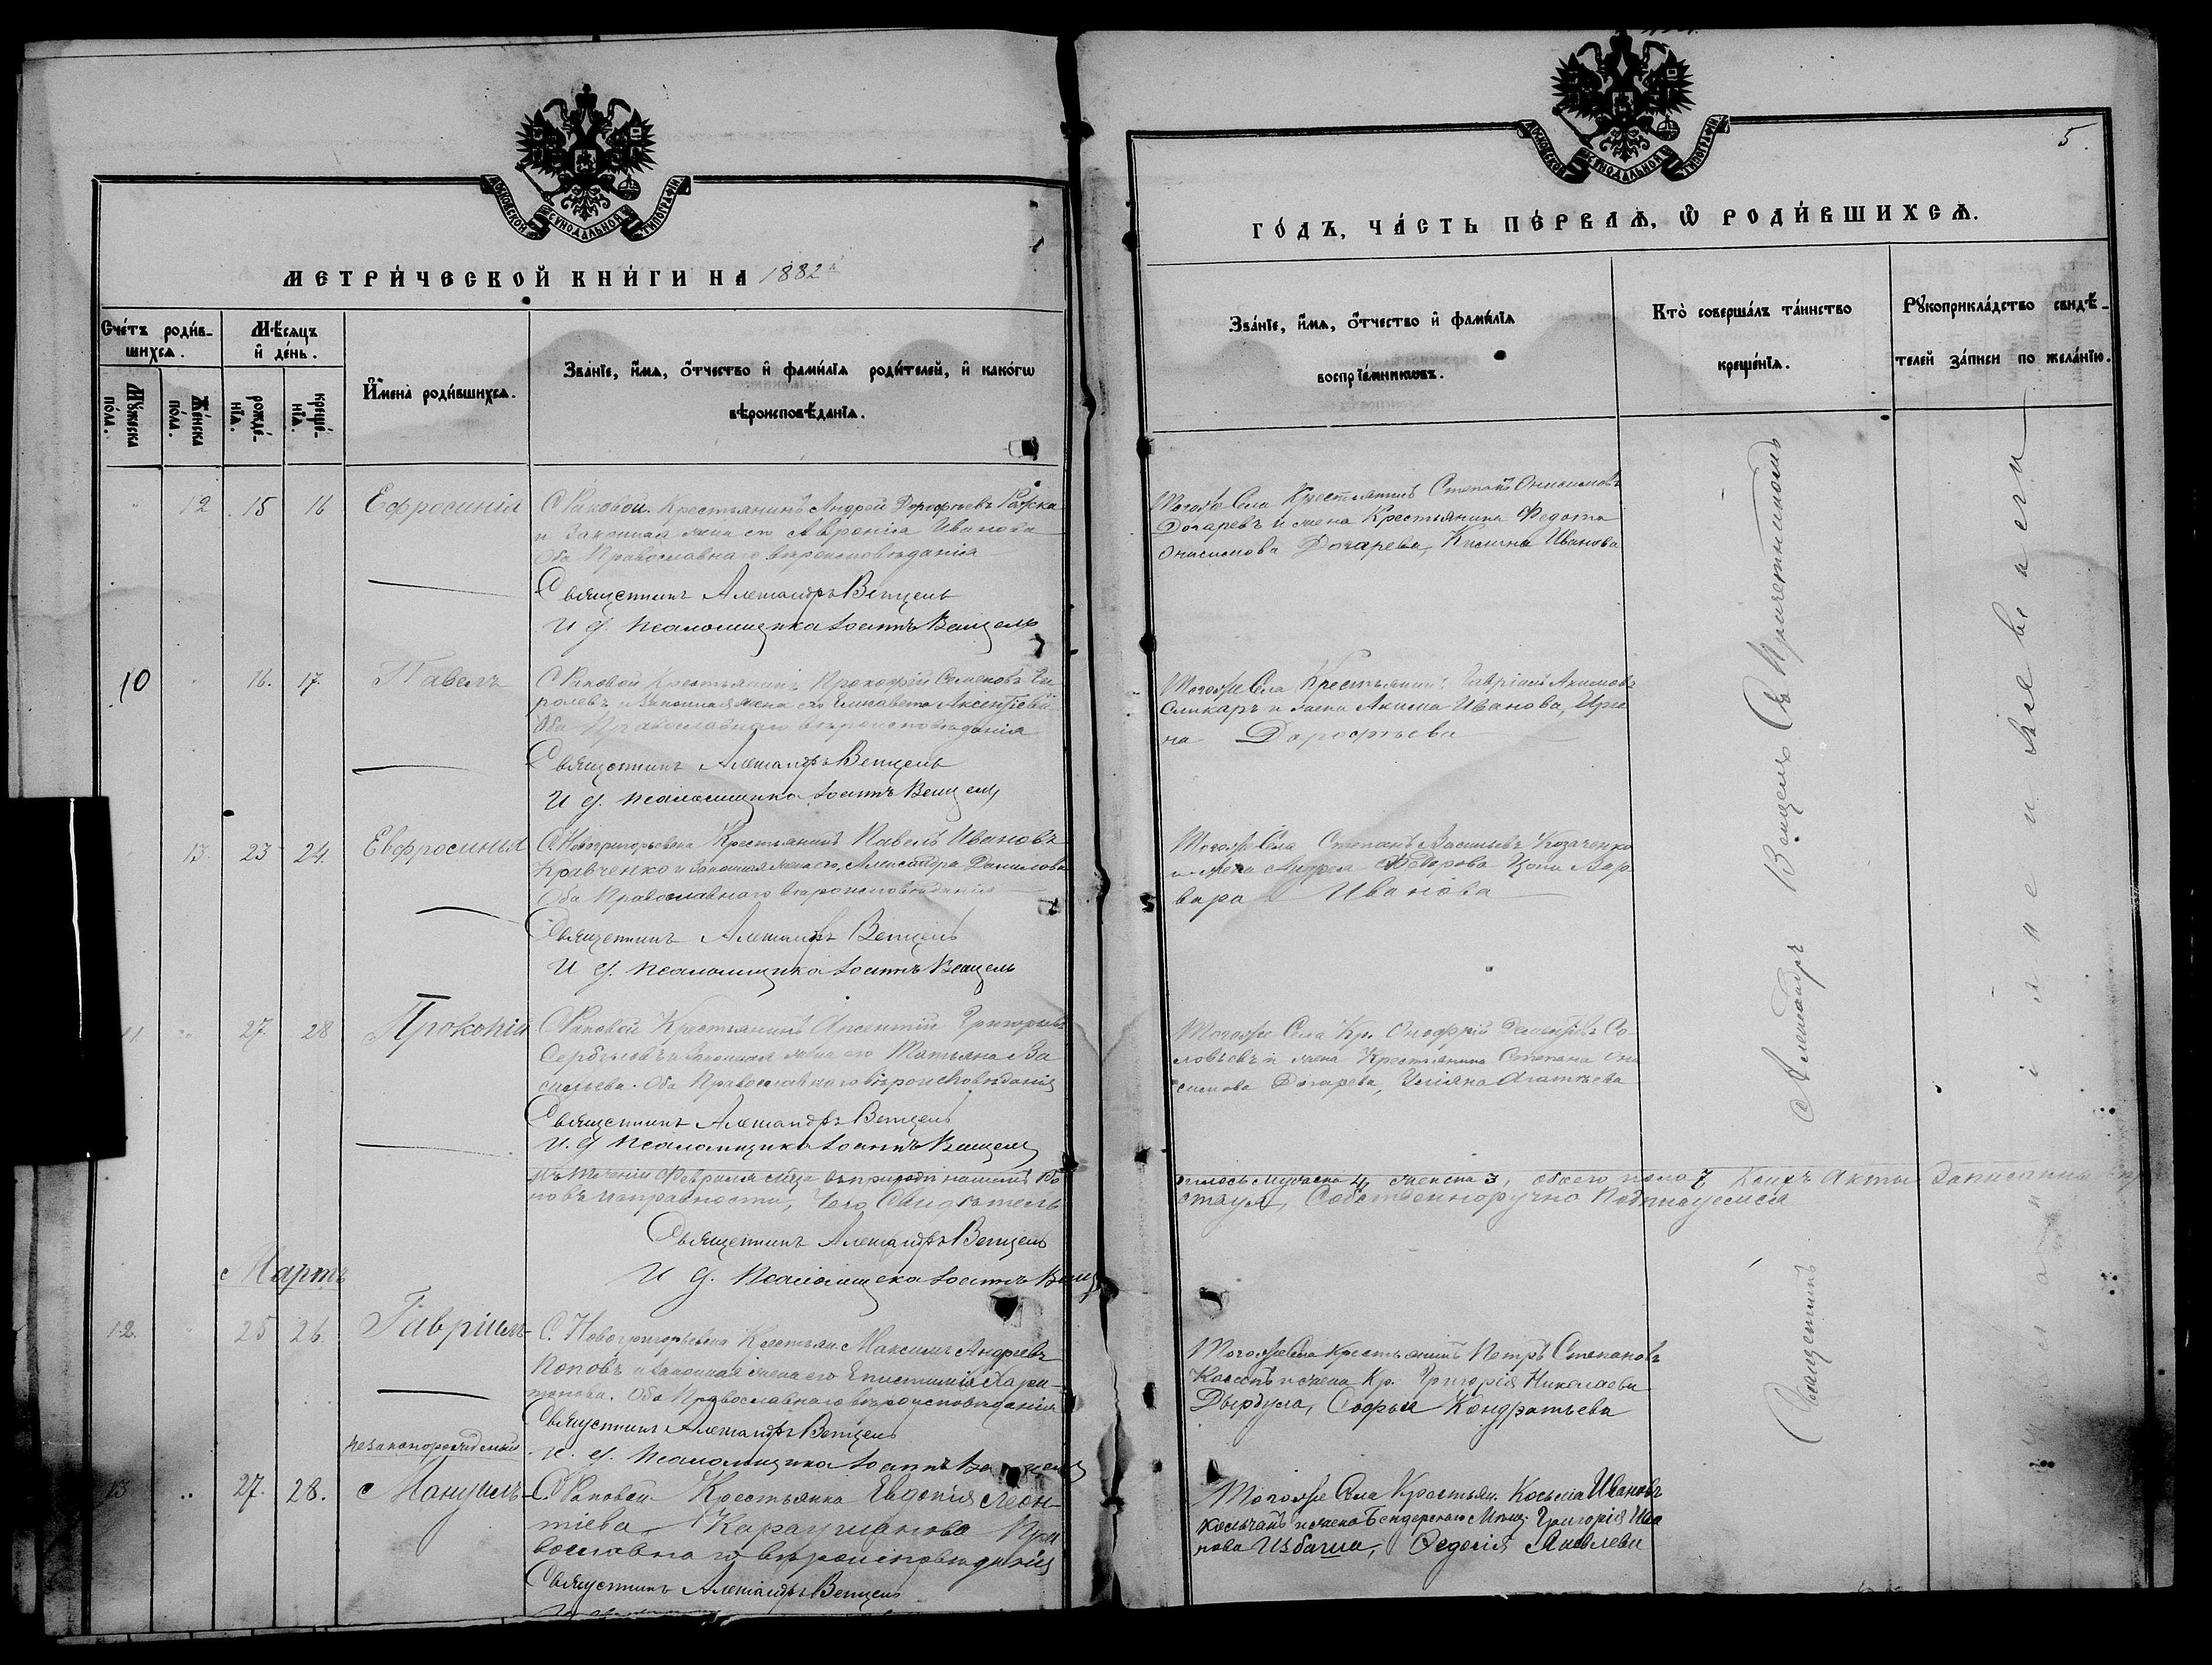 МОСКОВСКОЙ СѴНОДАЛЬНОЙ ТИПОГРАФІИ
МЕТРИ́ЧЕСКОЙ КНИ́ГИ НА 1882й
Сче́тъ роди́в-
шихсѧ.
Мѣ́сѧцъ
и҆ де́нь.
Мꙋ́жеска
по́ла.
Же́нска
по́ла.
рожде́-
нїѧ.
креще́-
нїѧ.
И҆мена̀ роди́вшихсѧ.
Зва́нїе, и҆́мѧ, ѻ҆́тчество и҆ фами́лїѧ роди́телей, и҆ како́гѡ
вѣроисповѣ́данїѧ.
12 15 16 Ефросинія
С. Раковой. Крестьянинъ Андрей Дорофѣевъ
и законная жена его Иванова
Оба Православнаго вѣроисповѣданія
Священникъ Александръ Венцель
И. д. псаломщика Іоаннъ Венцель
10 16. 17. Павелъ
С. Раковой Крестьянинъ Прокофій Семеновъ
и законная жена его Елисавета Аксентіева
Оба Православнаго вѣроисповѣданія
Священникъ Александръ Венцель
И д. псаломщика Іоаннъ Венцель
13. 23 24. Евфросинья
С. Новогригорьевна Крестьянинъ Павелъ Ивановъ
Кравченко и законная жена его, Александра Данилова
Оба Православнаго вѣроисповѣданія
Священникъ Александръ Венцель
И д. псаломщика Іоаннъ Венцель
11 27. 28 Прокопій
С. Раковой Крестьянинъ Аксентій Григорьевъ
Сербиновъ и законная жена его Татьяна Ва
сильева. Оба Православнаго вѣроисповѣданія
Священникъ Александръ Венцель
И. д. псаломщика Іоаннъ Венцель
Въ теченіи Февраля м-ца въ приходѣ нашемъ
исправности, Чего Свидѣтель
Священникъ Александръ Венцель
И д. псаломщика Іоаннъ Венц
Мартъ
12. 25 26. Гавріилъ
С. Новогригорьевна Крестьян. Максимъ Андреевъ
Поповъ и законная жена его Епистимія Хари-
тонова. Оба Православнаго вѣроисповѣданія
Священникъ Александръ Венцель
И. д. псаломщика Іоаннъ Венцель
незаконорожденный
13 27. 28. Мануилъ
С. Раковой. Крестьянка Евдокія Леон-
тіева Караульанова Пра
вославнаго вѣроисповѣданія
Священникъ Александръ Венцель
МОСКОВСКОЙ СѴНОДАЛЬНОЙ ТИПОГРАФІИ
5.
ГО́ДЪ, ЧА́СТЬ ПЕ́РВАѦ, Ѡ҆ РОДИ́ВШИХСѦ.
Зва́нїе, и҆́мѧ, ѻ҆́тчество и҆ фами́лїѧ
воспрїе́мникѡвъ.
Кто̀ соверша́лъ та́инство
креще́нїѧ.
Рꙋкоприкла́дство свидѣ́-
телей за́писи по жела́нїю.
Тогоже Села Крестьянинъ Степанъ Онисимовъ
Догаревъ и жена Крестьянина Федота
Онисимова Догарева, Ксенія Иванова
Тогоже Села Крестьянинъ Гавріилъ Акимовъ
Сликаръ и жена Акима Иванова, Ири
на Дорофѣева
Тогоже Села Степанъ Васильевъ Козаченко
и жена Андрея Федорова Цони Вар
вара Иванова
Тогоже Села Кр. Онофрій Дементіевъ Со
ловьевъ и жена Крестьянина Степана Они
симова Догарева, Уліяна Агапіева
мужеска 4, женска 3, обоего пола 7, Коихъ Акты Записанны
Собственноручно Подписуемся
Тогоже Села Крестьянинъ Петръ Степановъ
Касапъ и жена Кр. Григорія Николаева
Дырдула, Софья Кондратьева
Тогоже Села Крестьян. Косьма Ивановъ
Колчанъ и жена Бендерскаго Мѣщ. Григорія Ива
нова Избаша, Федосія Яковлева
Священникъ Александръ Венцель Съ Причетникомъ